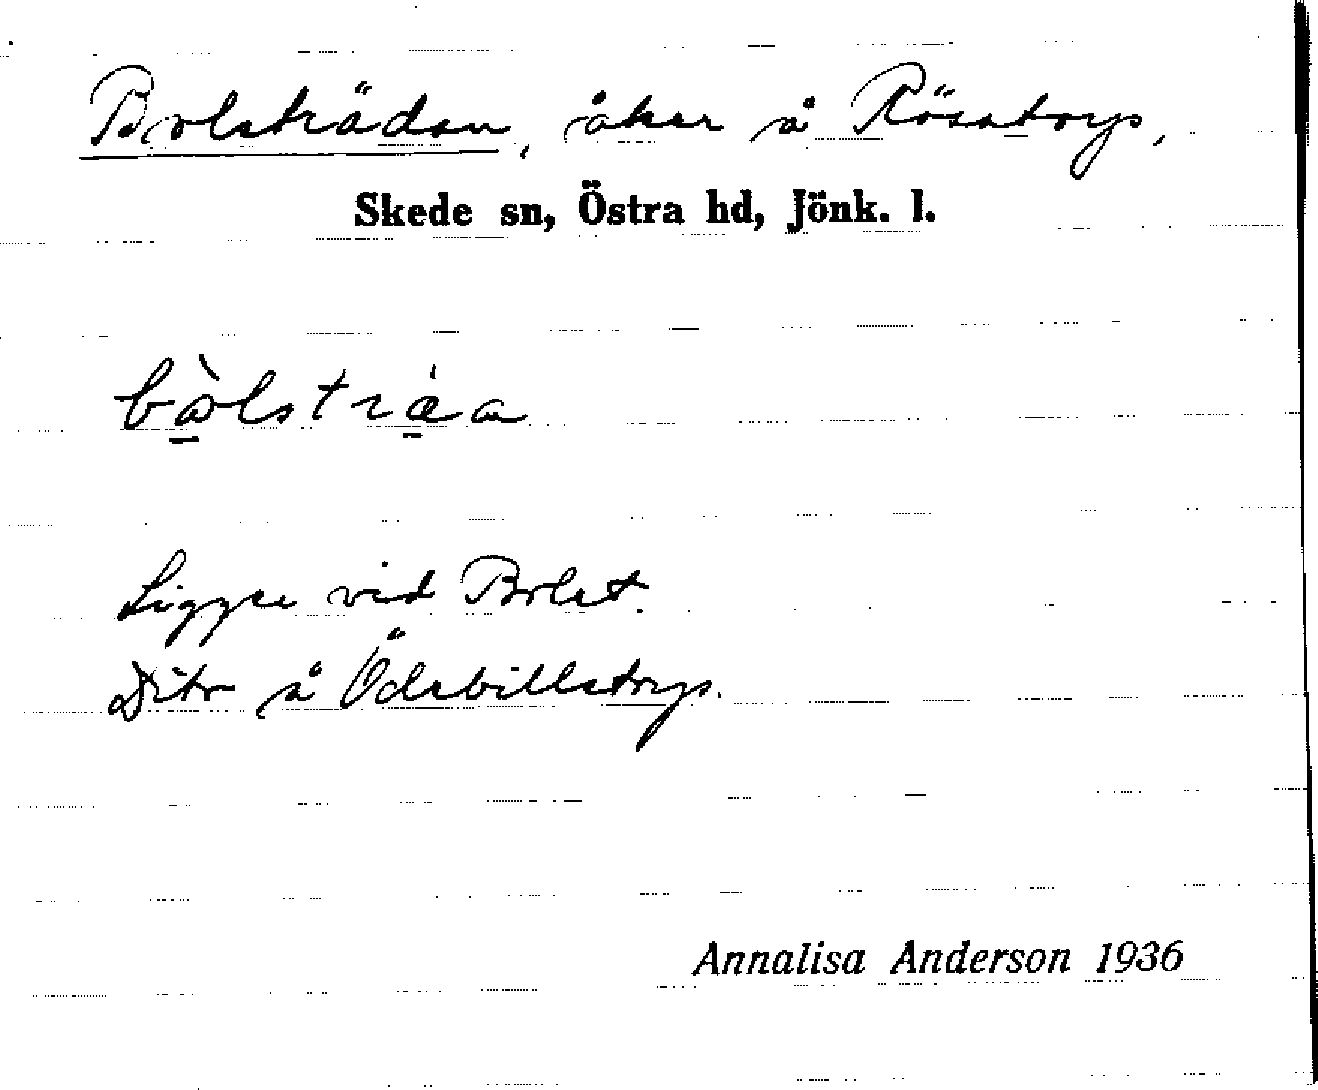 Bolsträdan, åker å Rösatorp,
Skede sn, Östra hd, Jönk. l.
bòlstráa
Ligger vid Bolet.
Dito å Ödebillstorp.
Annalisa Anderson 1936